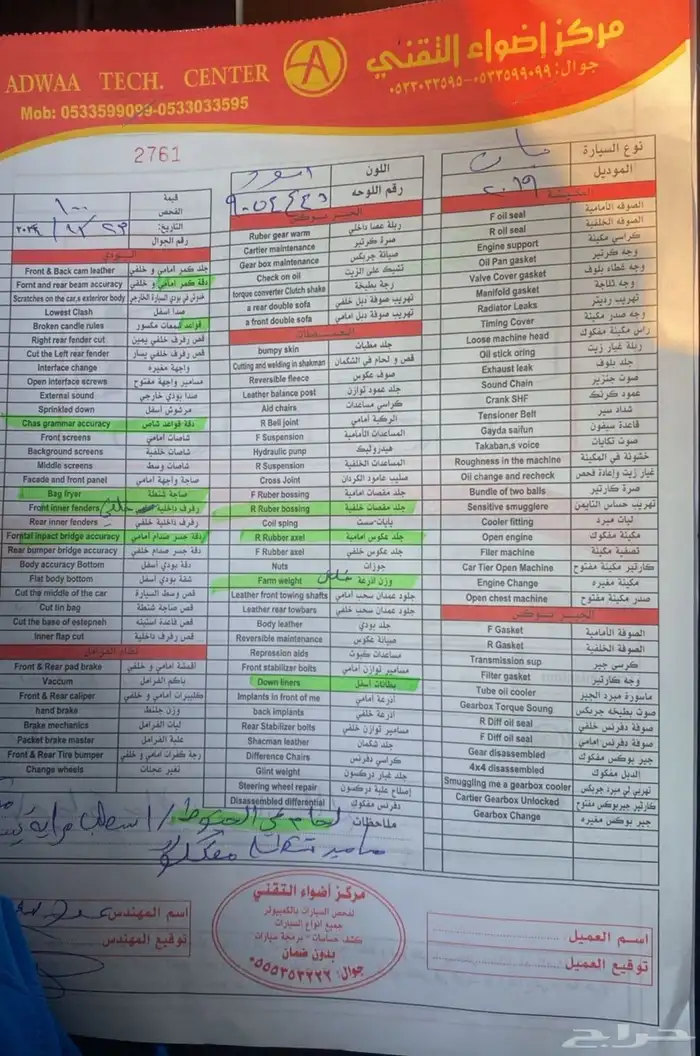 مركز إضواء التقني
جوال: ٠٥٣٣٥٩٩٠٩٩-٠٥٣٣٠٣٣٥٩٥
ADWAA TECH. CENTER
Mob: 0533599099-0533033595
2761
نوع السيارة
الموديل ٢٠١٩
اللون اسود
رقم اللوحه
قيمة الفحص ١٠٠
التاريخ:
رقم الجوال
المكينة
F oil seal الصوفه الأمامية
R oil seal الصوفه الخلفية
Engine support كراسي مكينة
Oil Pan gasket وجه كرتير
Valve Cover gasket وجه غطاء بلوف
Manifold gasket وجه ثلاجة
Radiator Leaks تهريب رديتر
Timing Cover وجه صدر مكينة
Loose machine head راس مكينة مفكوك
Oil stick oring ربلة غيار زيت
Exhaust leak جلد بلوف
Sound Chain صوت جنزير
Crank SHF عمود كرنك
Tensioner Belt شداد سير
Gayda saifun قاعدة سيفون
Takaban,s voice صوت تكايات
Roughness in the machine خشونة في المكينة
Oil change and recheck غيار زيت وإعادة فحص
Bundle of two balls صرة كارتير
Sensitive smugglere تهريب حساس التايمن
Cooler fitting لبات مبرد
Open engine مكينة مفكوك
Filer machine تصفية مكينة
Car Tier Open Machine كارتير مكينة مفتوح
Engine Change مكينة مغيره
Open chest machine صدر مكينة مفتوح
الجير بوكس
F Gasket الصوفة الأمامية
R Gasket الصوفة الخلفية
Transmission sup كرسي جير
Filter gasket وجه كارتير
Tube oil cooler ماسورة مبرد الجير
Gearbox Torque Soung صوت بطيخه جربكس
R Diff oil seal صوفة دفرنس خلفي
F Diff oil seal صوفة دفرنس إمامي
Gear disassembled جير بوكس مفكوك
4x4 disassembled الدبل مفكوك
Smuggling me a gearbox cooler تهربي لي مبرد جربكس
Cartier Gearbox Unlocked كارتير جيربوكس مفتوح
Gearbox Change جير بوكس مغيره
الجير بوكس
Ruber gear warm ربلة عصا داخلي
Cartier maintenance صرة كرتير
Gear box maintenance صيانة جربكس
Check on oil تشيك على الزيت
torque converter Clutch shake رجة بطيخة
a rear double sofa تهريب صوفة دبل خلفي
a front double sofa تهريب صوفة دبل امامي
bumpy skin جلد مطبات
Cutting and welding in shakman قص و لحام في الشكمان
Reversible fleece صوف عكوس
Leather balance post جلد عمود توازن
Aid chairs كراسي مساعدات
R Bell joint الركبة أمامي
F Suspension المساعدات الأمامية
Hydraulic punp هيدروليك
R Suspension المساعدات الخلفية
Cross Joint صليب عامود الكردان
F Ruber bossing جلد مقصات امامية
R Ruber bossing جلد مقصات خلفية
Coil sping يايات-ست
R Rubber axel جلد عكوس امامية
F Rubber axel جلد عكوس خلفي
Nuts جوزات
Farm weight وزن اذرعة
Leather front towing shafts جلود عمدان سحب أمامي
Leather rear towbars جلود عمدان سحب خلفي
Body leather جلد بودي
Reversible maintenance صيانة عكوس
Repression aids مساعدات كبوت
Front stabilizer bolts مسامير توازن أمامي
Down liners بطانات أسفل
Implants in front of me أذرعة أمامي
back implants أذرعة خلفي
Rear Stabilizer bolts مسامير توازن خلفي
Shacman leather جلد شكمان
Difference Chairs كراسي دفرنس
Glint weight جلد غبار دركسون
Steering wheel repair إصلاح علبة دركسون
Disassembled differential دفرنس مفكوك
البودي
Front & Back cam leather جلد كمر أمامي و خلفي
Fornt and rear beam accuracy دقة كمر أمامي و خلفي
Scratches on the car,s exteriror body خدوش في بودي السيارة الخارجي
Lowest Clash صدا اسفل
Broken candle rules قواعد شمعات مكسور
Right rear fender cut قص رفرف خلفي يمين
Cut the Left rear fender قص رفرف خلفي يسار
Interface change واجهة مغيره
Open interface screws مسامير واجهة مفتوح
External sound صدا بودي خارجي
Sprinkled down مرشوش أسفل
Chas grammar accuracy دقة قواعد شاص
Front screens شاصات امامي
Background screens شاصات خلفية
Middle screens شاصات وسط
Facade and front panel صاجة واجهة أمامي
Bag fryer صاجة شنطة
Front inner fenders رفرف داخلية خلفي
Rear inner fenders رفرف داخلية خلفي
Forntal inpact bridge accuracy دقة جسر صدام أمامي
Rear bumper bridge accuracy دقة جسر صدام خلفي
Body accuracy Bottom دقة بودي أسفل
Flat body bottom شقة بودي أسفل
Cut the middle of the car قص وسط السيارة
Cut tin bag قص صاجة شنطة
Cut the base of estepneh قص قاعدة استبنه
Inner flap cut قص رفرف داخلية
نظام الفرامل
Front & Rear pad brake أقمشة امامي و خلفي
Vaccum باكم الفرامل
Front & Rear caliper كليبرات أمامي و خلفي
hand brake وزن جلنط
Brake mechanics لبات الفرامل
Packet brake master علبة الفرامل
Front & Rear Tire bumper رجة كفرات امامي و خلفي
Change wheels تغير عجلات
ملاحظات
مركز أضواء التقني
لفحص السيارات بالكمبيوتر
جميع أنواع السيارات
كشف حساسات - برمجة سيارات
بدون ضمان
جوال: ٠٥٥٥٣٥٣٢٢٢
اسم المهندس
توقيع المهندس
اسم العميل
توقيع العميل
حراج